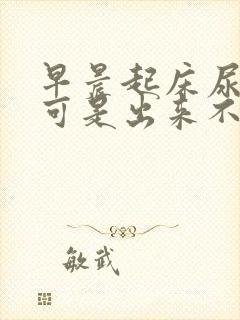 早晨起床尿
可是出来不
敏武